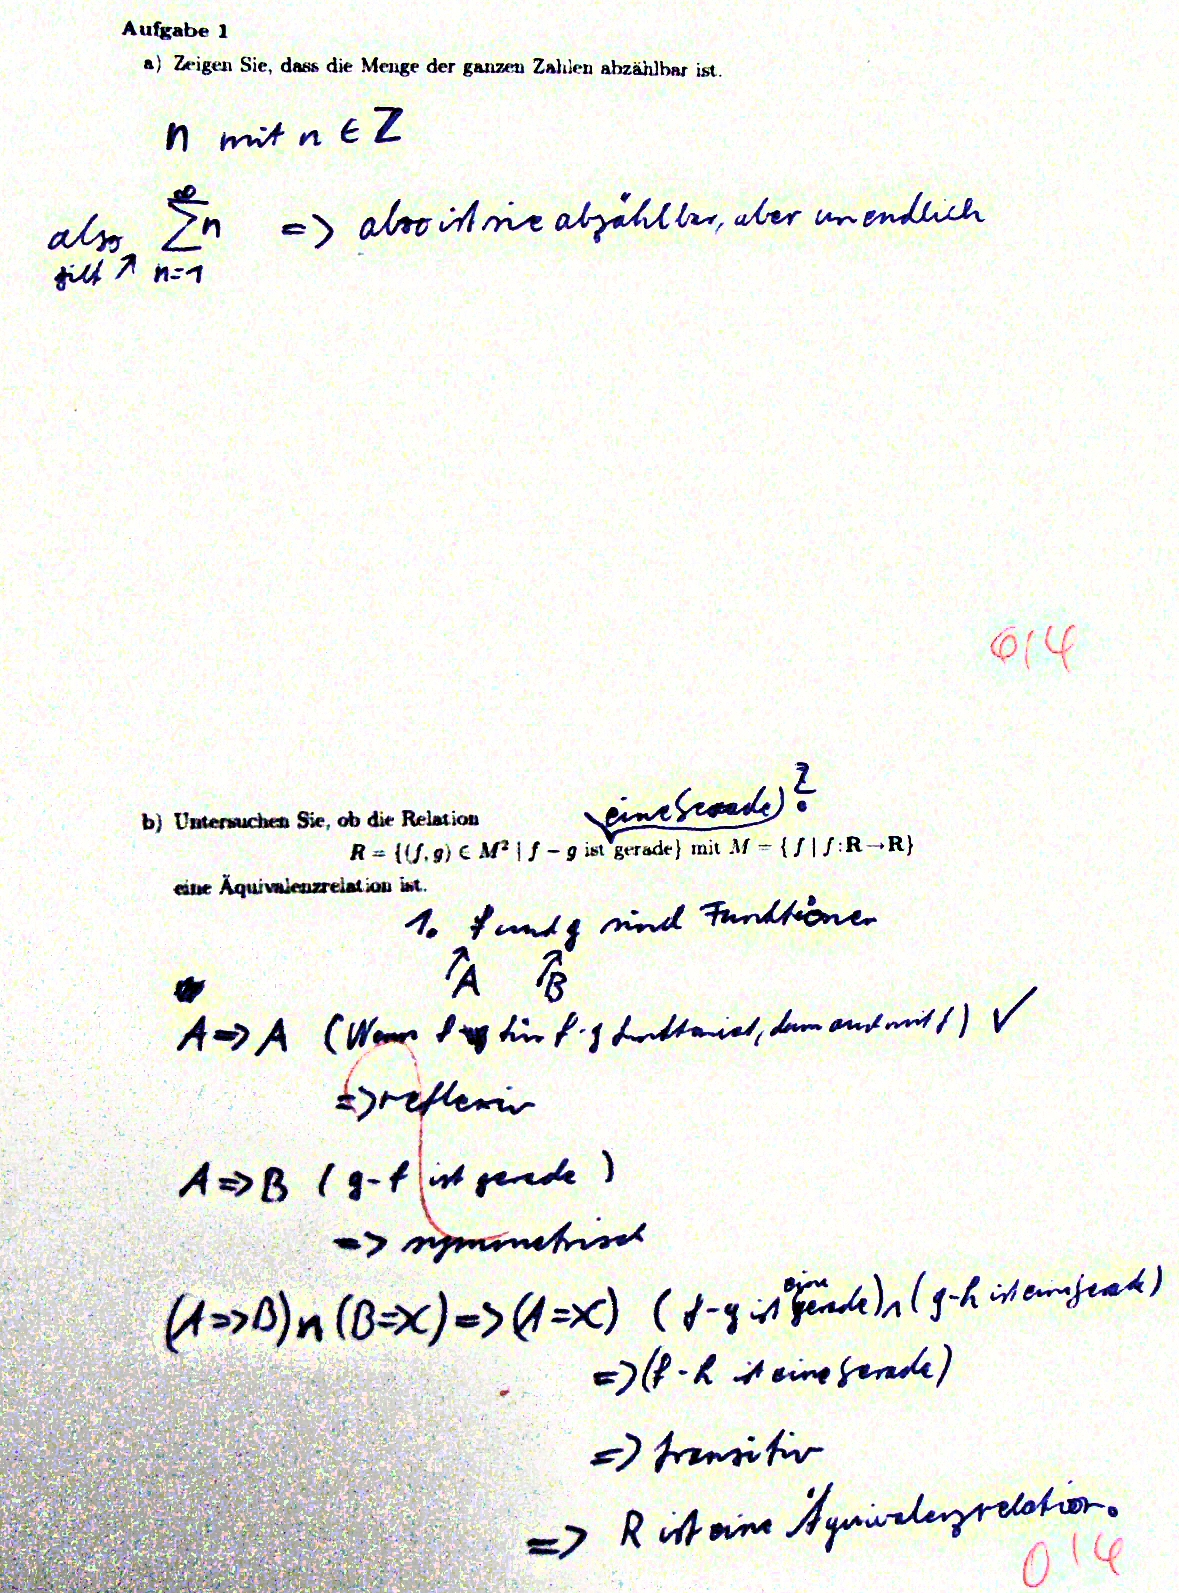 Aufgabe 1
a) Zeigen Sie, dass die Menge der ganzen Zahlen abzählbar ist.
n mit n ∈ Z
also gilt ↗ ∞ ∑ n n=1 => also ist sie abzählbar, aber unendlich
0/4
eine Gerade)?
b) Untersuchen Sie, ob die Relation
R = {(f, g) ∈ M² | f − g ist gerade} mit M = {f | f:R→R}
eine Äquivalenzrelation ist.
1. f und g sind Funktionen
↗A ↗B
A => A (Wenn f für f-g funktioniert, dann auch mit f) ✓
=> reflexiv
A => B (g-f ist gerade)
=> symmetrisch
(A=>B) n (B=>C) => (A=>C) (f-g ist eine gerade) ∧ (g-h ist eine gerade)
=> (f-h ist eine Gerade)
=> transitiv
=> R ist eine Äquivalenzrelation.
0/4